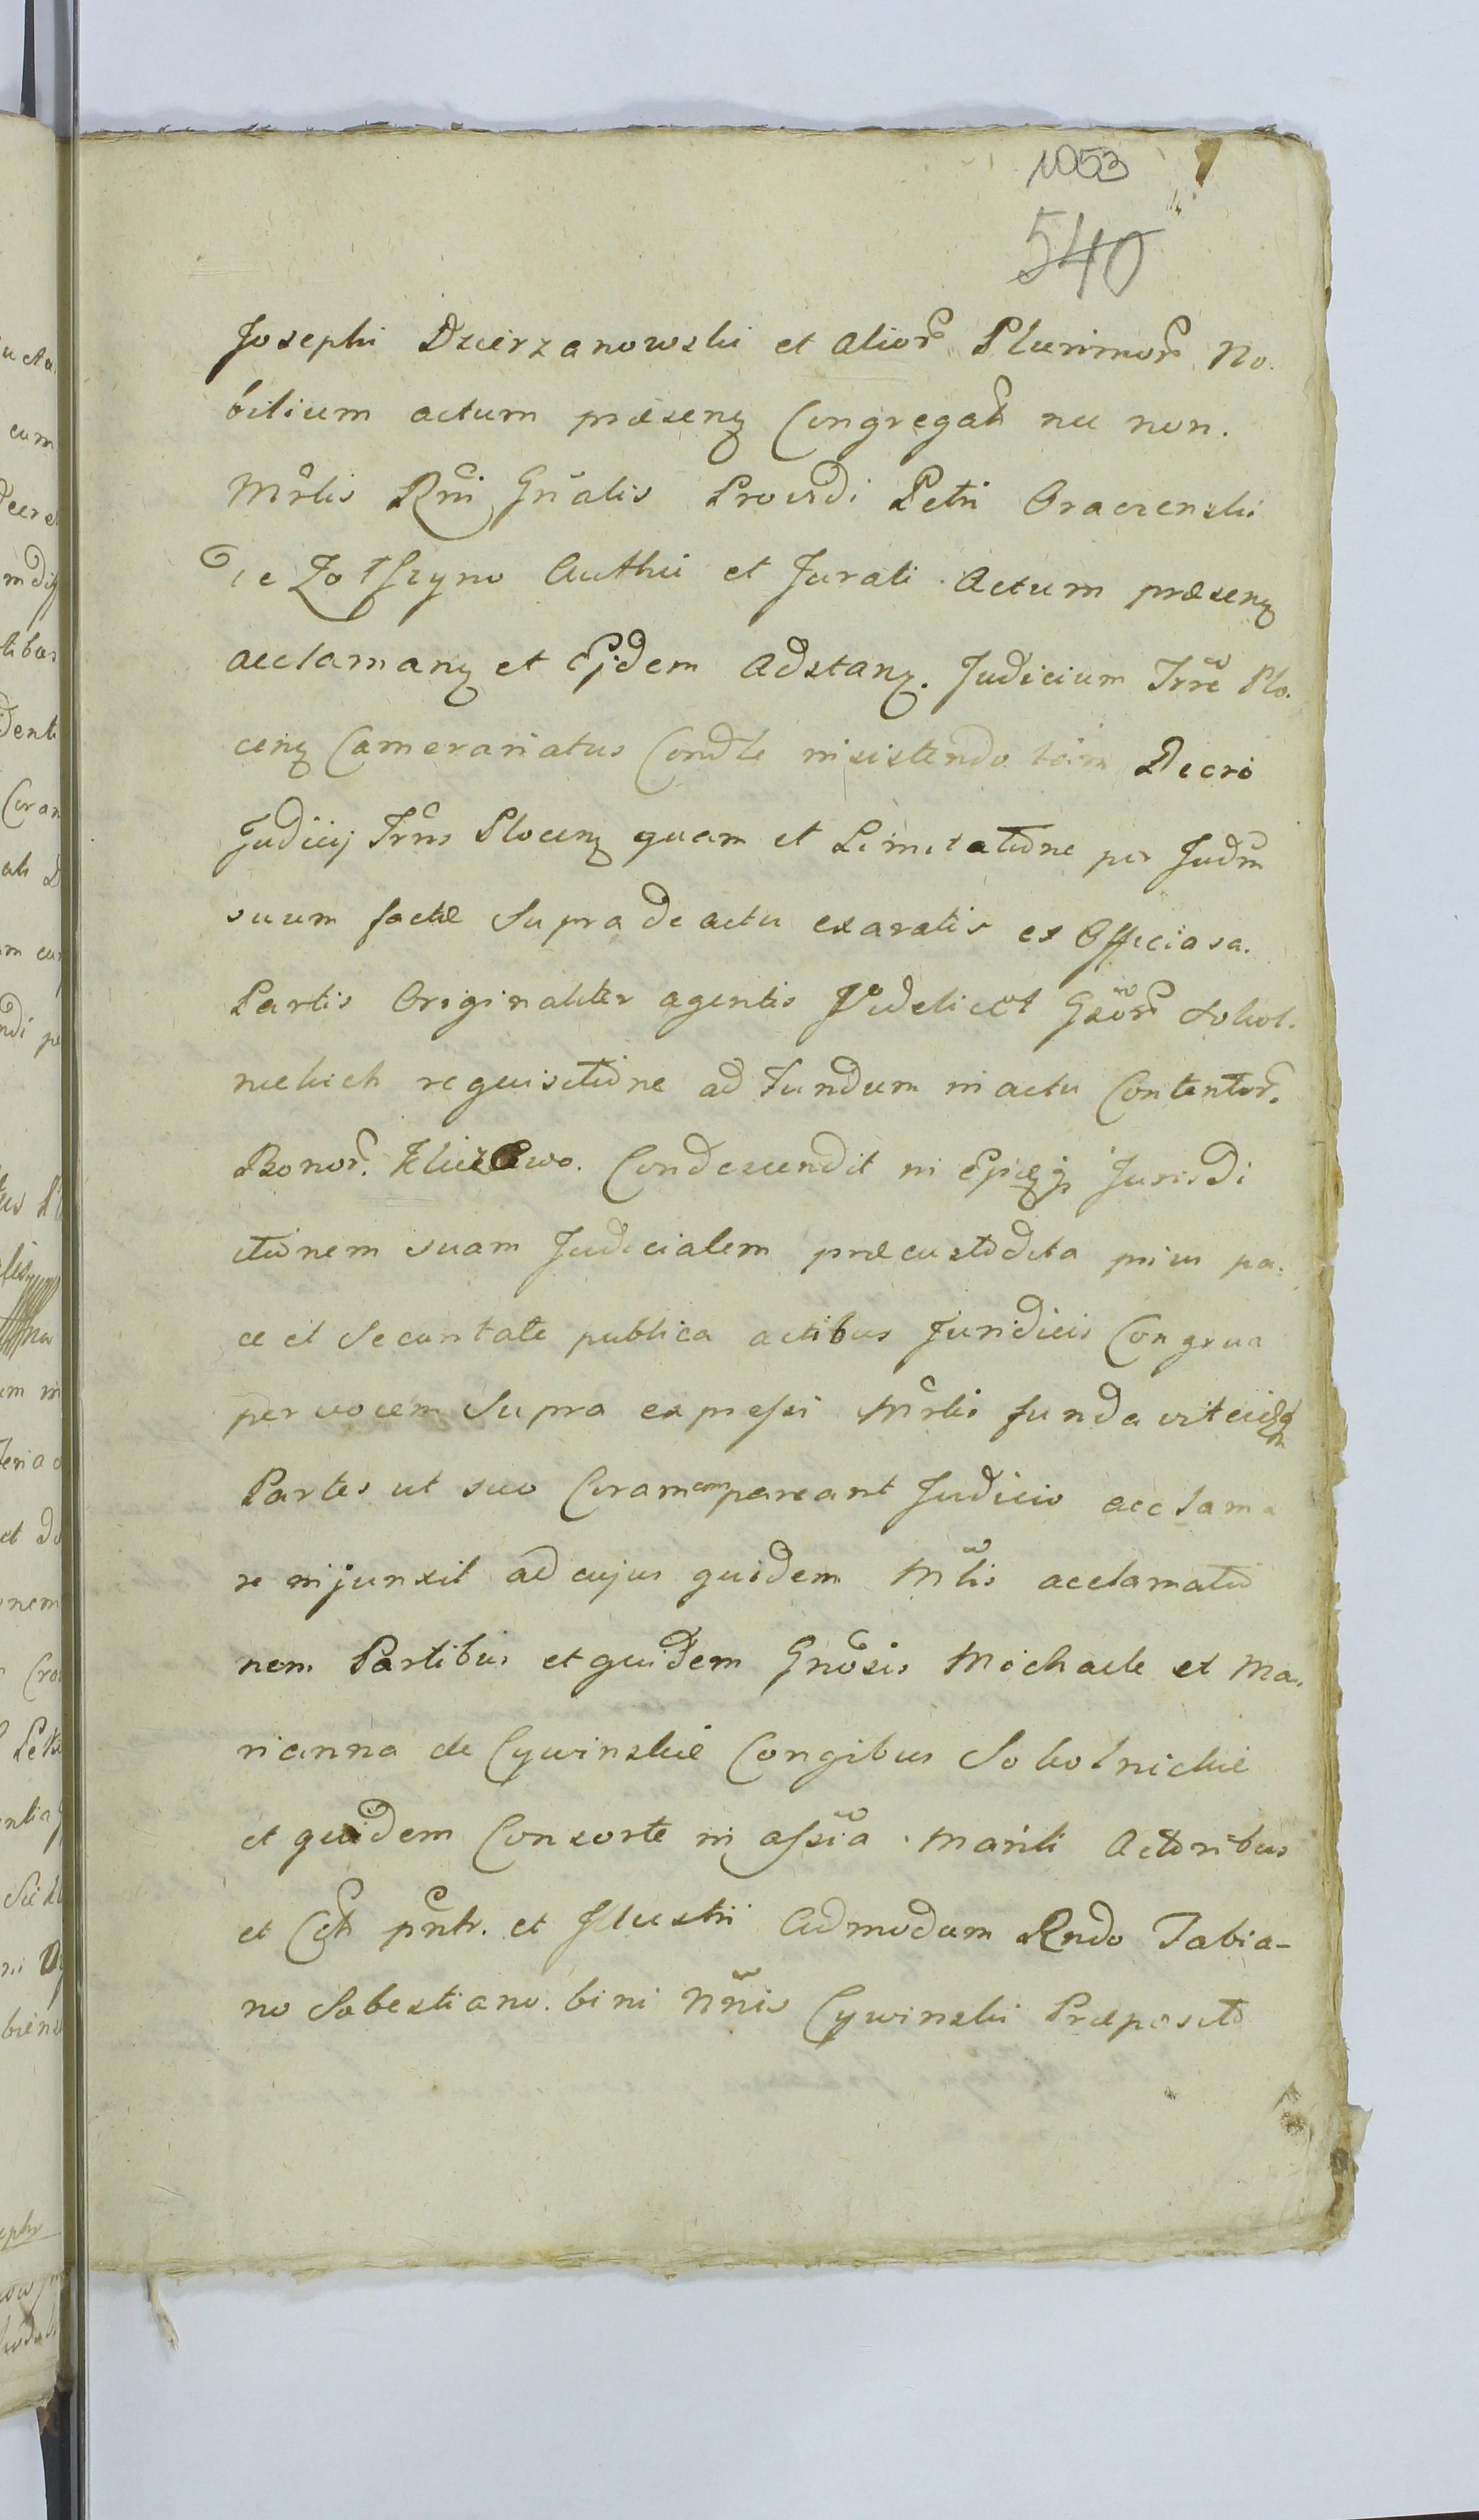 1053
540
Josephi Dzierzanowski et alior Plurimor No.
bilium actum præsenz Congregath nec non.
Mrlis Rni Gnalis Providi Petri Oraczenski
de authci et Jurati actum præsenz
acclamanz et Ejdem adstanz. Judicium Trre Plo.
cenz Camerariatus Condle insistendo tam Decro
Judicij Trris Plocenz quam et Limitatiône per Judm
suum factæ Supra de actu exaratis ex Officiosa.
Partis Originaliter agentis Videlicet Gsor Sokol.
nickich requisitione ad Fundum in actu Contentor.
Bonor. Condescendit in Jurisdi
ctionem suam Judicialem præcustodita prius pa.
ce et Securitate publica actibus Juridicis Congrua
per vocem Supra expressi Mrlis fundavit
Partes ut suo Coram compareant Judicio acclama
re injunxit ad cujus quidem Mlis acclamatio
nem Partibus et quidem Gnosis Michaele et Ma.
rianna de Cywinskie Congibus Sokolnickie
et quidem Consorte in assia Mariti Actoribus
et Cth pnth. et Illustri admodum Rndo Fabia-
no Sebestiano. bini Nnis Cywinski Præposito